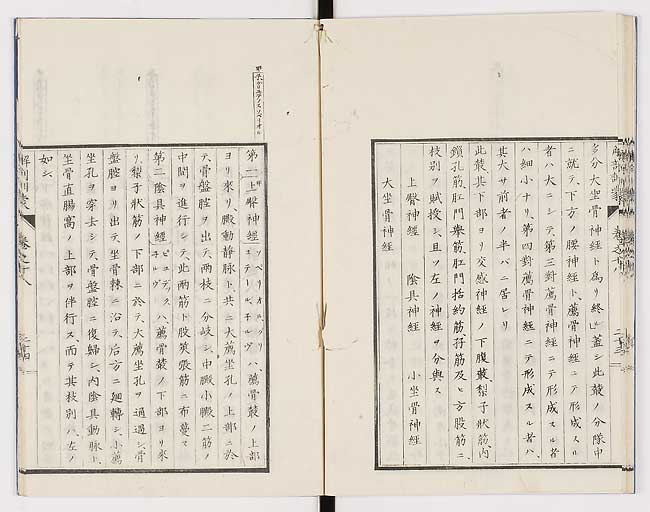 多分大坐骨神経ト為リ終ル蓋シ此叢ノ分隊中
ニ就テ、下方ノ腰神経ト、薦骨神経ニテ形成スル
者ハ大ニシテ、第三對薦骨神経ニテ形成スル者
ハ細小ナリ、第四對薦骨神経ニテ形成スル者ハ、
其大サ前者ノ半バニ居レリ
此叢其下部ヨリ交感神経ノ下腹叢、梨子状筋、内
鎖孔筋、肛門擧筋、肛門括約筋、孖筋及ヒ方股筋ニ、
枝別ヲ賦授シ、且ツ左ノ神経ヲ分與ス
上臀神経 陰具神経 小坐骨神経
大坐骨神経
第一上臀神経ハ、薦骨叢ノ上部
ヨリ來リ、臀動静脉ト共ニ大薦坐孔ノ上部ニ於
テ、骨盤腔ヲ出テ、兩枝ニ分岐シ、中臀小臀二筋ノ
中間ヲ進行シテ、此兩筋ト股莢張筋ニ布蔓ス
第二陰具神経ハ、薦骨叢ノ下部ヨリ來
リ、梨子状筋ノ下部ニ於テ、大薦坐孔ヲ通過シ、骨
盤腔ヨリ出テ、坐骨棘ニ沿テ、后方ニ廻轉シ、小薦
坐孔ヲ穿去シテ、骨盤腔ニ復歸シ、内陰具動脉ト、
坐骨直腸窩ノ上部ヲ伴行ス、而テ其枝別ハ、左ノ
如シ
解剖訓蒙 巻之十八